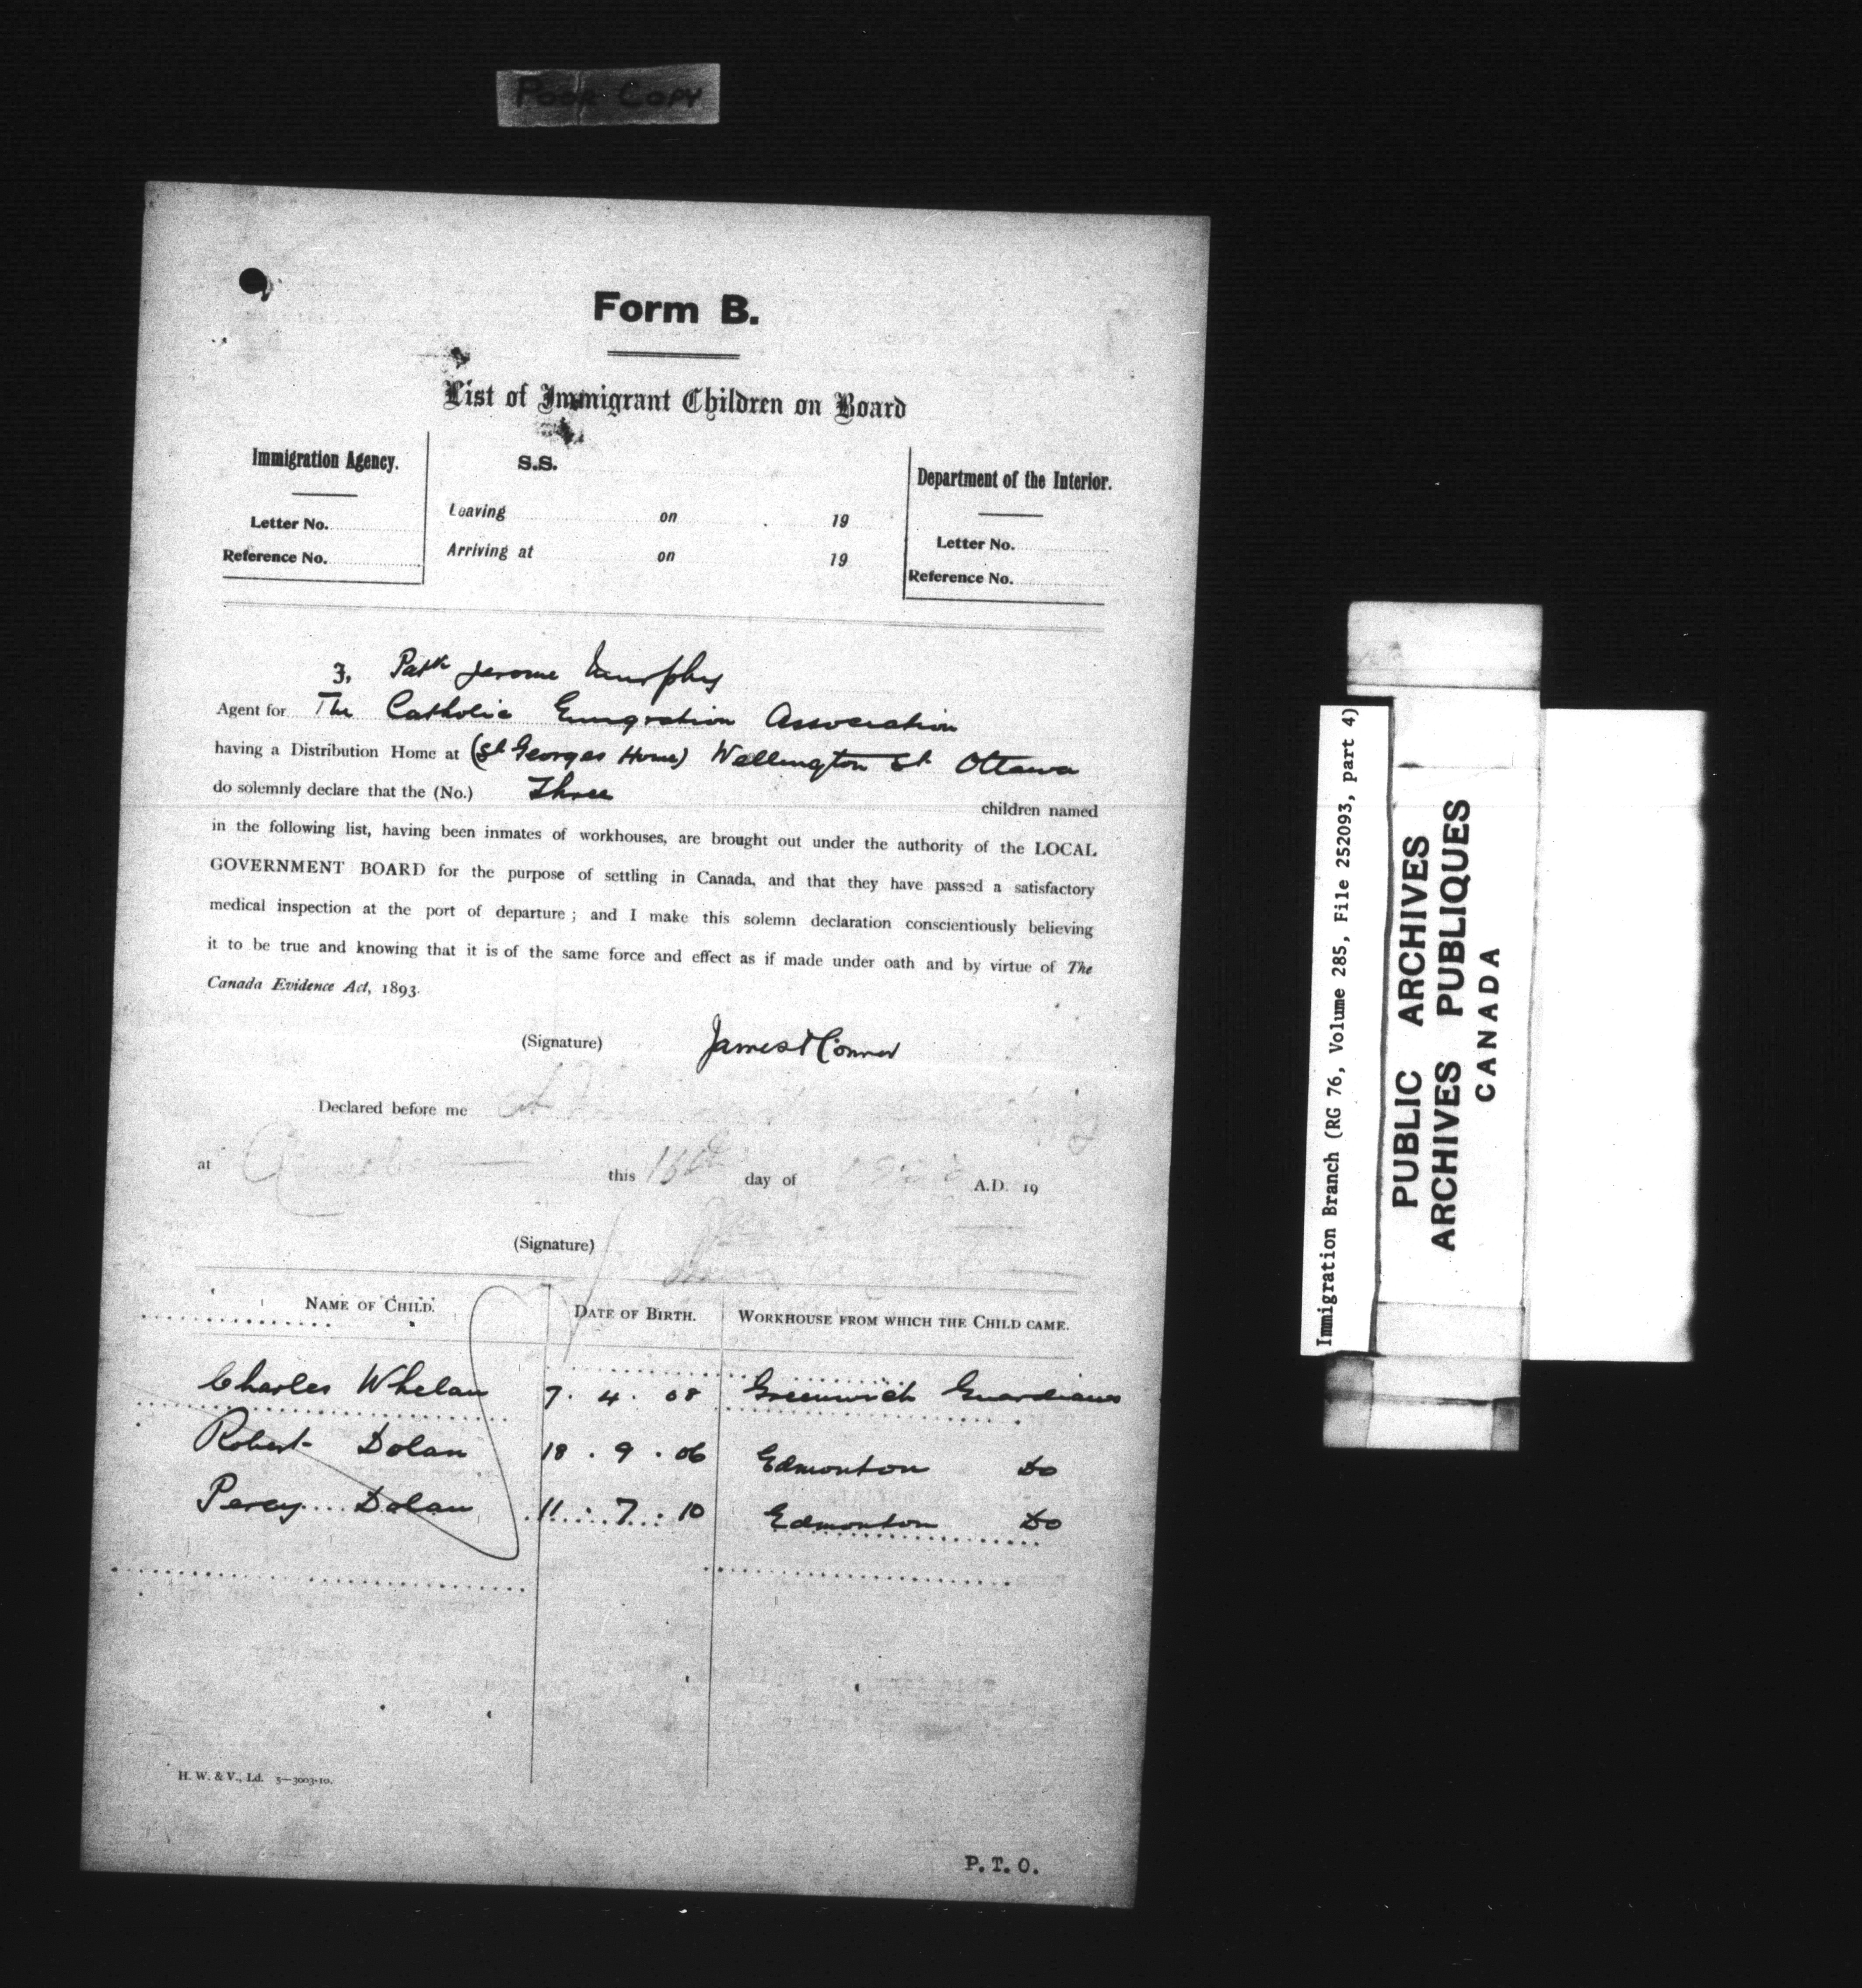 POOR COPY
Form B.
List of Immigrant Children on Board
Immigration Agency.
Letter No.
Reference No.
S.S.
Leaving on 19
Arriving at on 19
Department of the Interior.
Letter No.
Reference No.
3, Patk Jerome Murphy
Agent for The Catholic Emigration Association
having a Distribution Home at (St Georges Home) Wellington St Ottawa
do solemnly declare that the (No.) Three children named
in the following list, having been inmates of workhouses, are brought out under the authority of the LOCAL
GOVERNMENT BOARD for the purpose of settling in Canada, and that they have passed a satisfactory
medical inspection at the port of departure; and I make this solemn declaration conscientiously believing
it to be true and knowing that it is of the same force and effect as if made under oath and by virtue of The
Canada Evidence Act, 1893.
(Signature) James
Declared before me
at this 16th day of A.D. 19
(Signature)
NAME OF CHILD. DATE OF BIRTH. WORKHOUSE FROM WHICH THE CHILD CAME.
Charles Whelan 7. 4. 08 Greenwich Guardians
Robert Dolan 18. 9. 06 Edmonton Do
Percy Dolan 11. 7. 10 Edmonton Do
H. W. & V., Ld. 5—3003-10.
P.T.O.
Immigration Branch (RG 76, Volume 285, File 252093, part 4)
PUBLIC ARCHIVES
ARCHIVES PUBLIQUES
CANADA